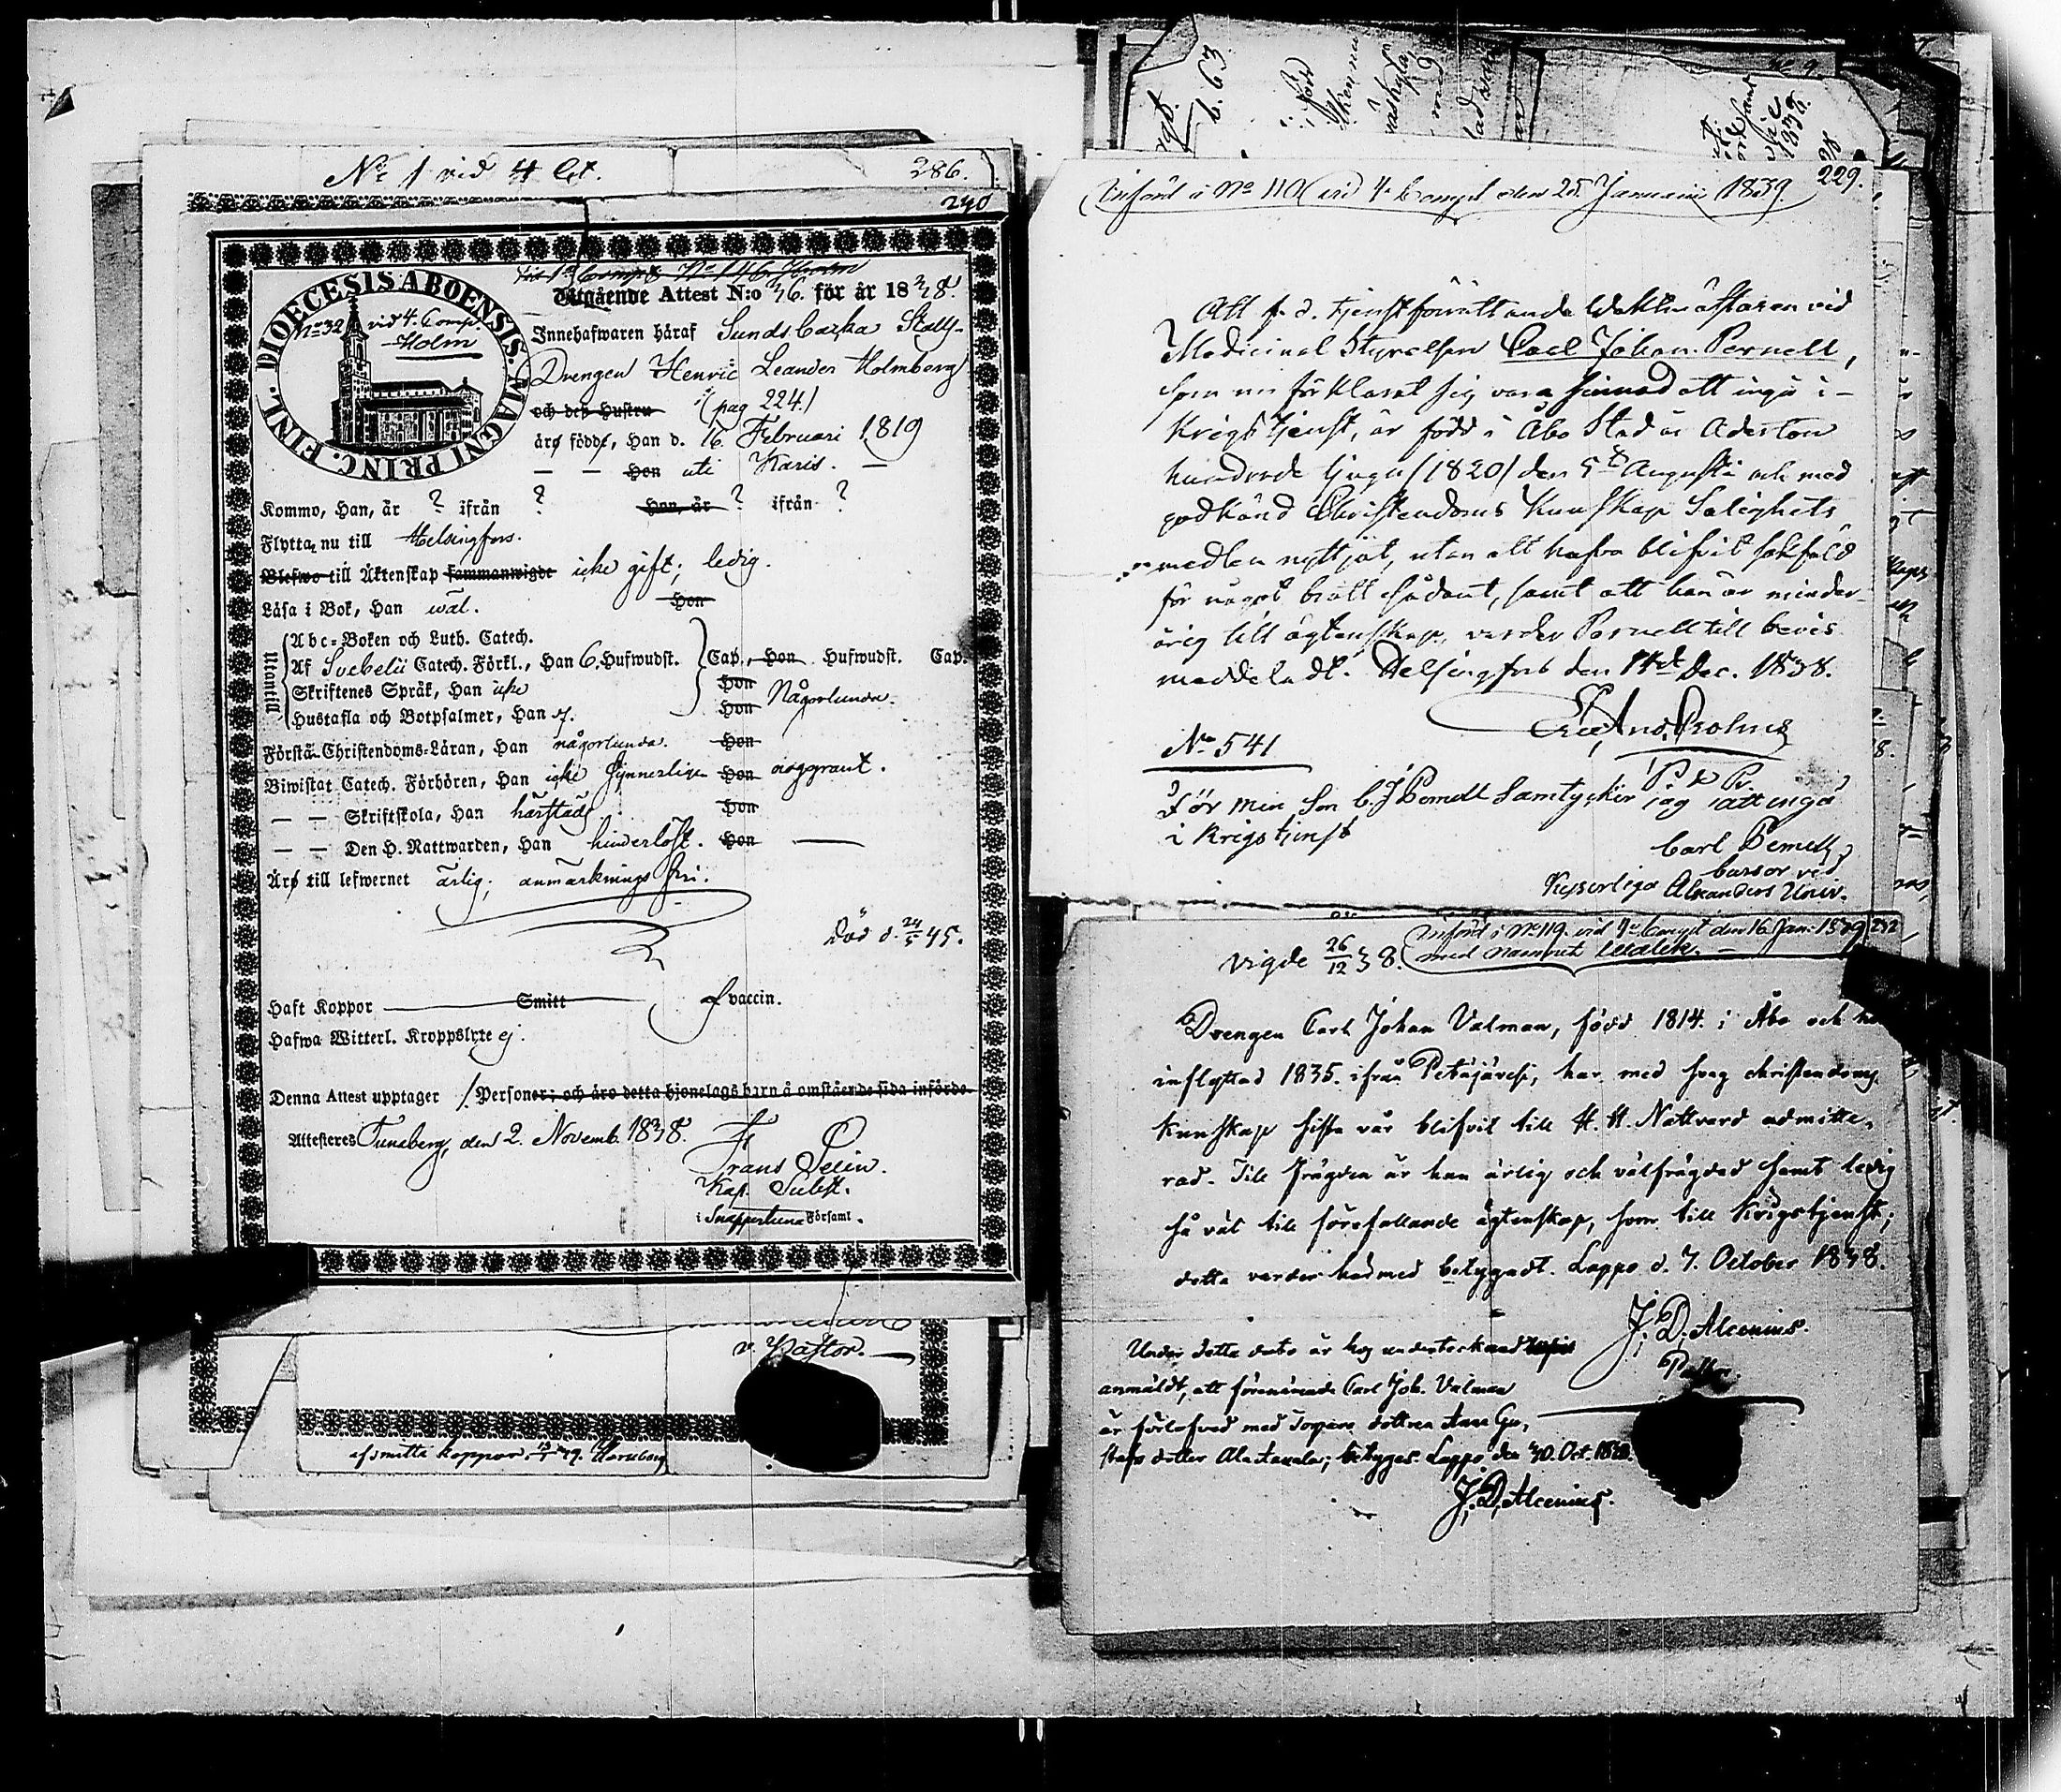 No 1 vid 4 Ct.
286.
240
No 32 vid 4. Comp.
Holm
DIOECESIS ABOENSIS. MAGNI PRINC. FINL.
Utgående Attest N:o 36. för år 1838.
Innehafwaren håraf Sundsbacka Stalls-
Drengen Henric Leander Holmberg
och des Hustru (pag 224.)
äro födde, Han d. 16. Februari 1819
— — Hon uti Karis. —
Kommo, Han, är ? ifrån ? Hon, är ? ifrån ?
Flytta nu till Helsingfors.
Blefwo till Äktenskap sammanwigde icke gift; ledig.
Läsa i Bok, Han wäl. Hon
Utantill
Abc-Boken och Luth. Catech.
Af Svebelii Catech. Förkl., Han 6. Hufwudst. Cap., Hon Hufwudst. Cap.
Skriftenes Språk, Han icke Hon Någorlunda.
Hustafla och Botpsalmer, Han ej. Hon
Förstå Christendoms-Läran, Han någorlunda. Hon
Biwistat Catech. Förhören, Han icke synnerligen Hon noggrant.
— — Skriftskola, Han härstäds Hon
— — Den H. Nattwarden, Han hinderlöst. Hon —
Äro till lefwernet ärlig; anmärknings fri.
Död d. 24/5 45.
Haft Koppor Smitt vaccin.
Hafwa Witterl. Kroppslyte ej.
Denna Attest upptager 1. Personer; och äro detta hjonelags barn å omstående sida införde.
Attesteres Tuneberg, den 2. Novemb. 1838.
Frans
Kap. Subst.
i Snappertuna Församl.
v. Pastor.
af smitta koppor.
229.
Införd i No 110 vid 4e Compt den 25 Januarii 1839.
Att f. d. tjenstförrättande Waktmästaren vid
Medicinal Styrelsen Carl Johan Pernell,
som nu förklarat sig vara sinnad att ingå i
Krigs tjenst, är född i Åbo Stad år Aderton
hundrade tjugu (1820) den 5te Augusti och med
godkänd Christendoms Kunskap Salighets
medlen nyttjat, utan att hafva blifvit sakfäld
för något brott sådant, samt att han är minder-
årig till ägtenskap, varder Pernell till bevis
meddeladt. Helsingfors den 14de Dec. 1838.
No 541
För min Son C. J Pernell Samtycker jag att ingå
i Krigstjenst
Carl Pernell
Cursor vid
Kejserliga Alexanders Univ.
vigde 26/12 38.
Införd i No 119. vid 4e Compt den 16 Jan: 1839
med namnet Walek.
232
Drengen Carl Johan Valman, född 1814. i Åbo och
inflyttad 1835. ifrån Petäjävesi, har med svag christendoms
kunskap sista vår blifvit till H. H. Nattvard admitte-
rad. Till frägden är han ärlig och välfrägdad samt ledig
så väl till förefallande ägtenskap, som till Krigstjenst;
detta varder härmed betygadt. Lappo d. 7. October 1838.
J. D. Alcenius.
Pastor
Under detta dato är hos undertecknad
anmäldt, att förenämnde Carl Joh. Valman
är förlofvad med dottren Anna Gu-
stafs dotter Ala Tanala; betygas. Lappo den 30. Oct. 1838.
J. D. Alcenius.